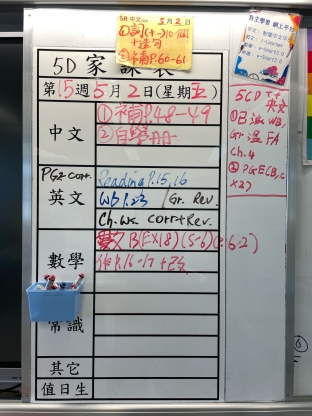 6R 中文 5月2日
①詞(十一)10個
+造句
②補P.60-61
自主學習 網上平台
5D 家課表
第15週5月2日(星期五)
中文
①補P.48-49
②自學冊
PG2 corr.
英文
Reading P.15,16
WB P.23 / Gr. Rev.
Ch. WS corr+Rev.
數學
B(EX18)(5-6)
作P.16-17+改
常識
其它
值日生
5CD
英文
WB,
Gr FA
Ch.4
② PGE(B,C
x2)